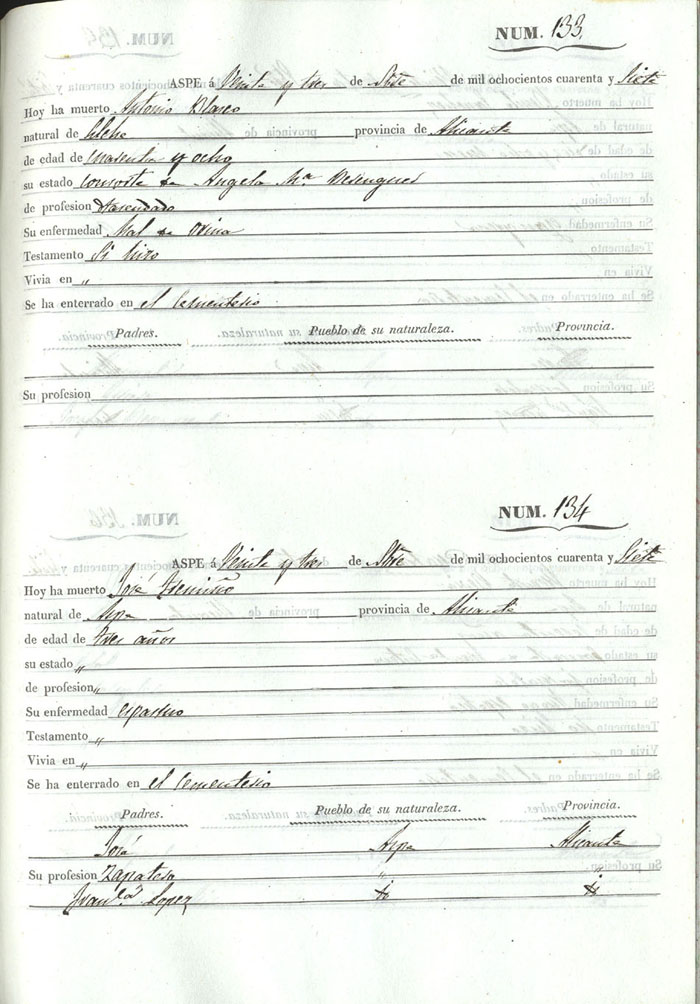 NUM. 133.
ASPE á Veinte y tres de Sbre de mil ochocientos cuarenta y Siete
Hoy ha muerto Antonio Blasco
natural de Elche provincia de Alicante
de edad de cuarenta y ocho
su estado consorte de Angela Mª
de profesion Hacendado
Su enfermedad Mal de orina
Testamento Si hizo
Vivia en "
Se ha enterrado en el Cementerio
Padres. Pueblo de su naturaleza. Provincia.
Su profesion
NUM. 134
ASPE á Veinte y tres de Sbre de mil ochocientos cuarenta y Siete
Hoy ha muerto José
natural de Aspe provincia de Alicante
de edad de tres años
su estado "
de profesion "
Su enfermedad espasmo
Testamento "
Vivia en "
Se ha enterrado en el Cementerio
Padres. Pueblo de su naturaleza. Provincia.
José Aspe Alicante
Su profesion Zapatero " "
Franca Lopez id id